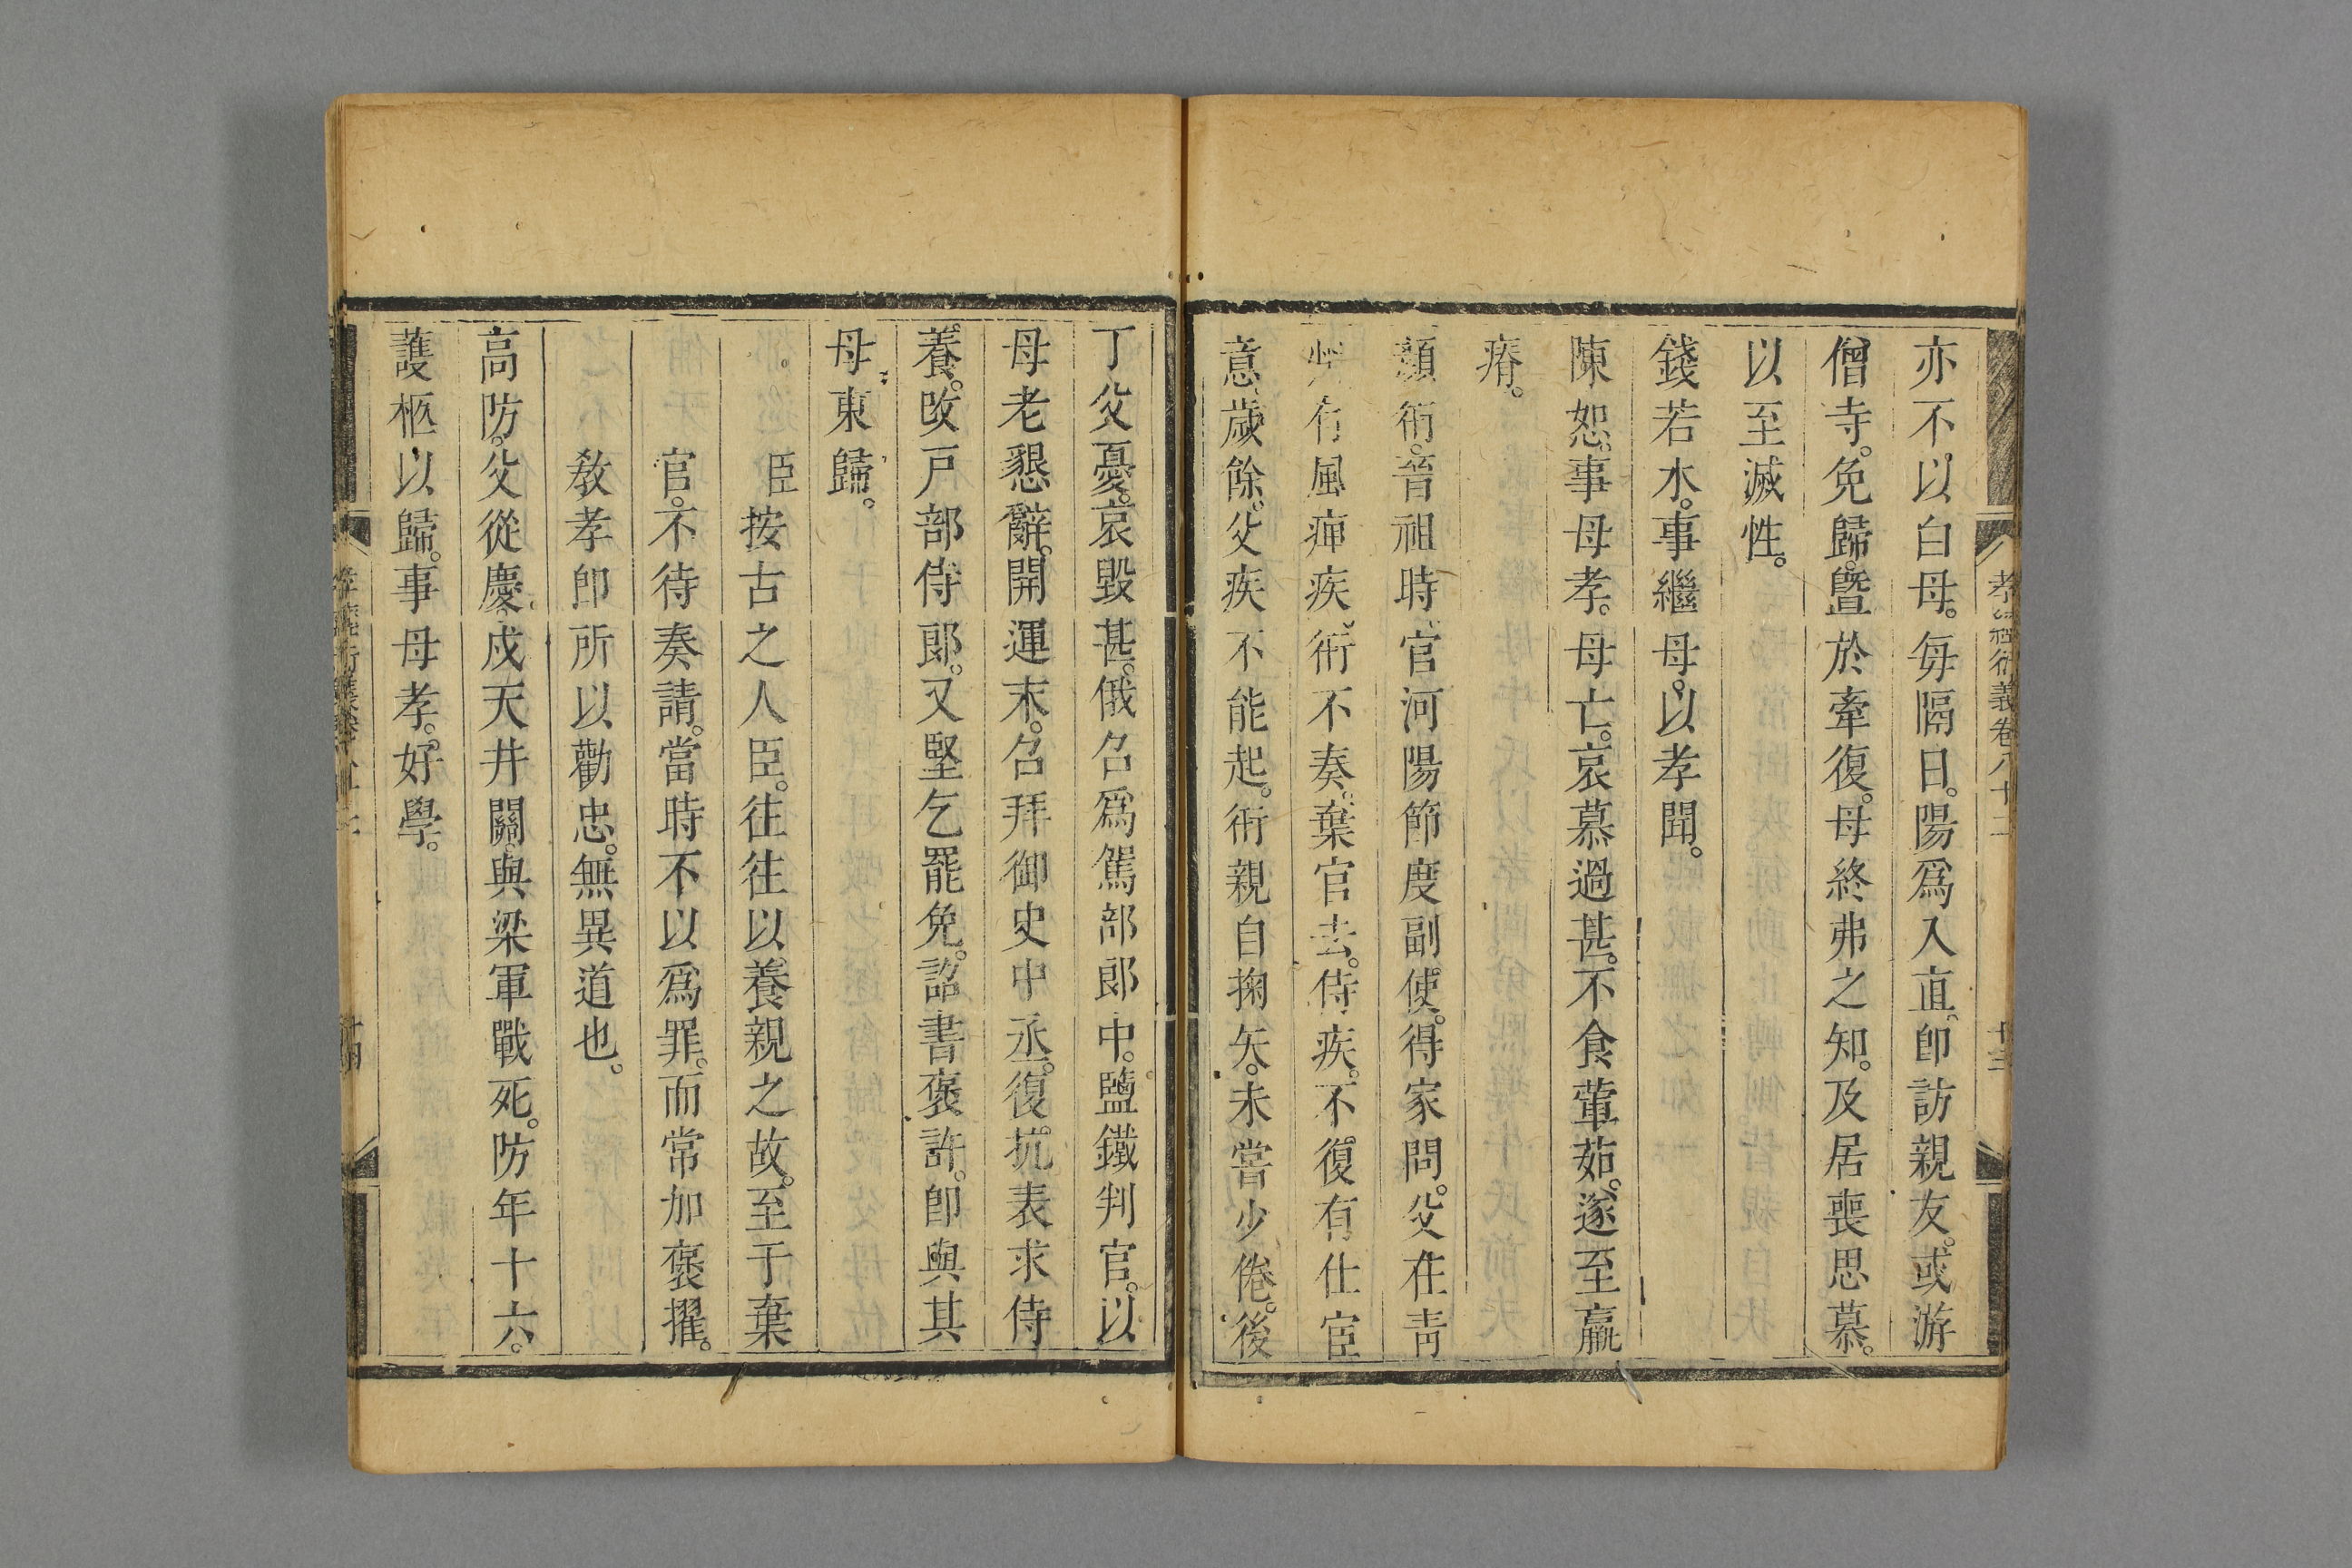 孝經衍義卷八十二
十三
亦不以白母。每隔日。陽爲入直。卽訪親友。或游
僧寺。免歸。曁於牽復。母終弗之知。及居喪思慕。
以至滅性。
錢若水。事繼母。以孝聞。
陳恕。事母孝。母亡。哀慕過甚。不食葷茹。遂至羸
瘠。
顏衎。晉祖時。官河陽節度副使。得家問。父在靑
州有風痺疾。衎不奏。棄官去。侍疾。不復有仕宦
意。歲餘。父疾不能起。衎親自掬矢。未嘗少倦。後
丁父憂。哀毀甚。俄召爲駕部郎中。鹽鐵判官。以
母老懇辭。開運末。召拜御史中丞。復抗表求侍
養。改戸部侍郎。又堅乞罷免。詔書褒許。卽與其
母東歸。
臣按古之人臣。往往以養親之故。至于棄
官。不待奏請。當時不以爲罪。而常加褒擢。
敎孝卽所以勸忠。無異道也。
高防。父從慶。戍天井關。與梁軍戰死。防年十六。
護柩以歸。事母孝。好學。